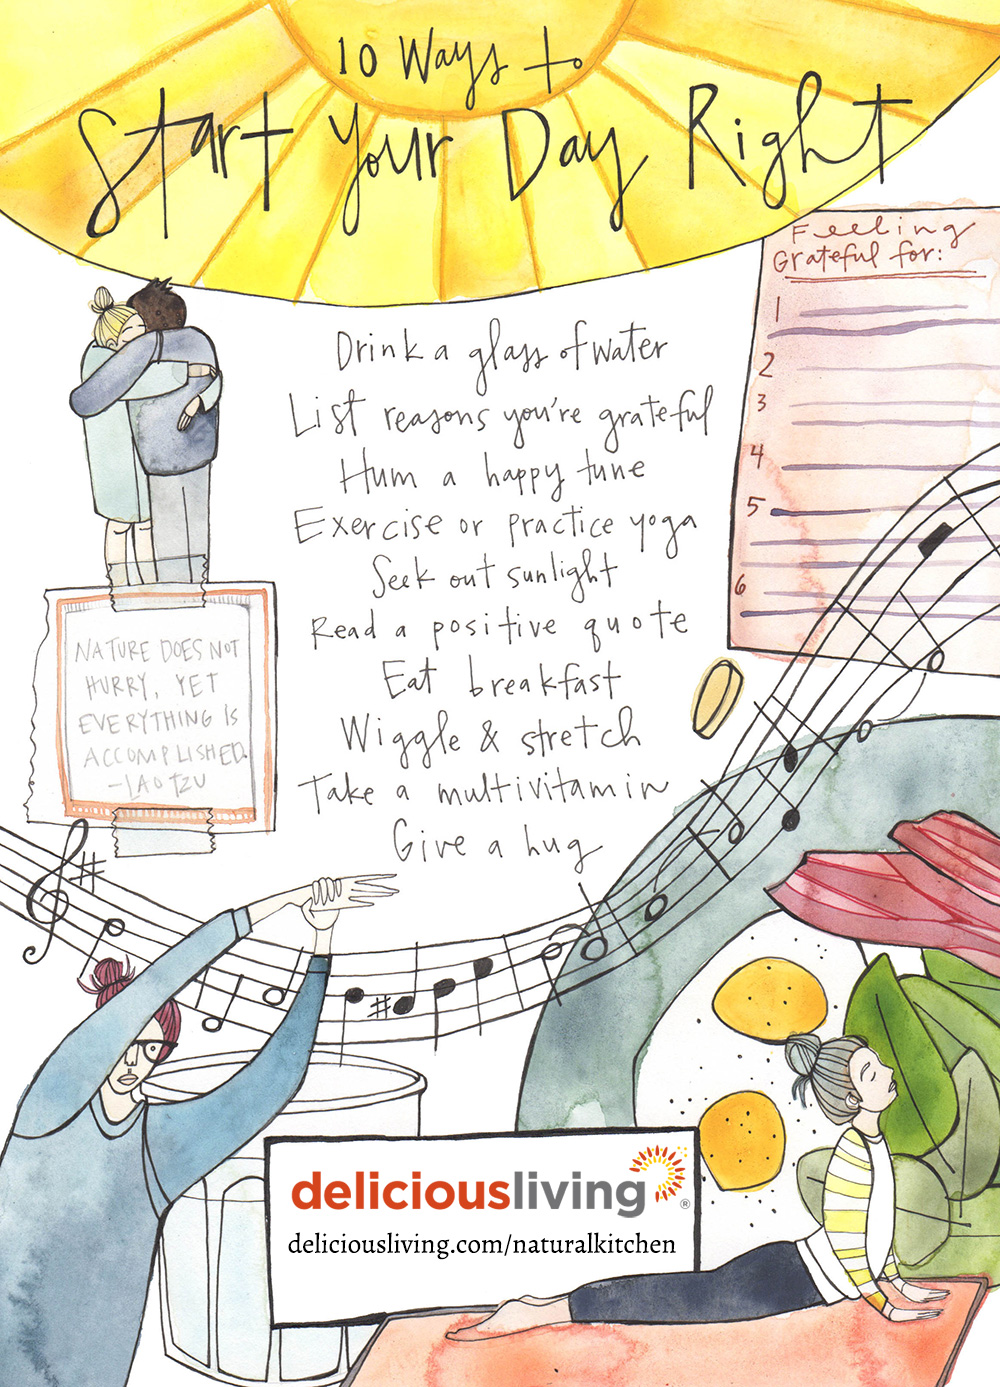 10 Ways to
Start Your Day Right
Feeling
Grateful for:
1
2
3
4
5
6
Drink a glass of water
List reasons you're grateful
Hum a happy tune
Exercise or practice yoga
Seek out sunlight
Read a positive quote
Eat breakfast
Wiggle & stretch
Take a multivitamin
Give a hug
NATURE DOES NOT
HURRY, YET
EVERYTHING IS
ACCOMPLISHED.
-LAO TZU
deliciousliving®
deliciousliving.com/naturalkitchen